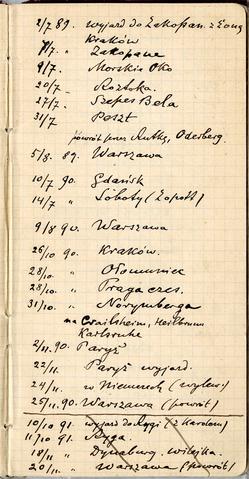 2/7 89. wyjazd do Zakopan. z Żoną
Kraków
7/7. " Zakopane
9/7. " Morskie Oko
20/7 " Roztoka.
27/7 " Szepes Bela
31/7 " Peszt
powrót przez Rutky, Oderberg.
5/8. 89. Warszawa
10/7 90. Gdańsk
14/7 " Soboty (Zopot)
9/8 90. Warszawa
26/10 90. Kraków.
28/10 " Ołomuniec
28/10. " Praga czes.
31/10 " Norymberga
na Crailsheim, Heilbrunn
Karlsruhe
2/11. 90. Paryż
22/11. Paryż wyjazd.
24/11. w Niemczech (wylew)
25/11. 90. Warszawa (powrót)
10/10 91. wyjazd do Rygi (z Karolem)
11/10 91. Ryga.
18/11 " Dynaburg. Wilejka.
20/11 " Warszawa (powrót)